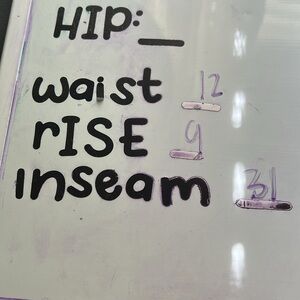 HIP:_
waist 12
rISE 9
Inseam 31